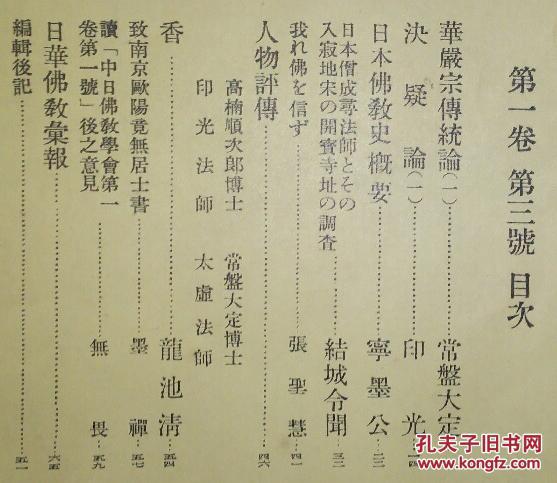 第一卷 第三號 目次
華嚴宗傳統論（一）………常盤大定
決疑論（一）………印光 一四
日本佛敎史槪要………寧墨公 二二
日本僧成尋法師とその
入寂地宋の開寶寺址の調査………結城令聞 三二
我れ佛を信ず………張聖慧 四一
人物評傳………四六
高楠順次郎博士 常盤大定博士
印光法師 太虛法師
香………龍池淸 五四
致南京歐陽竟無居士書………墨禪 五七
讀「中日佛敎學會第一
卷第一號」後之意見………無畏 五九
日華佛敎彙報………六五
編輯後記………
孔夫子旧书网
KONGFZ.COM